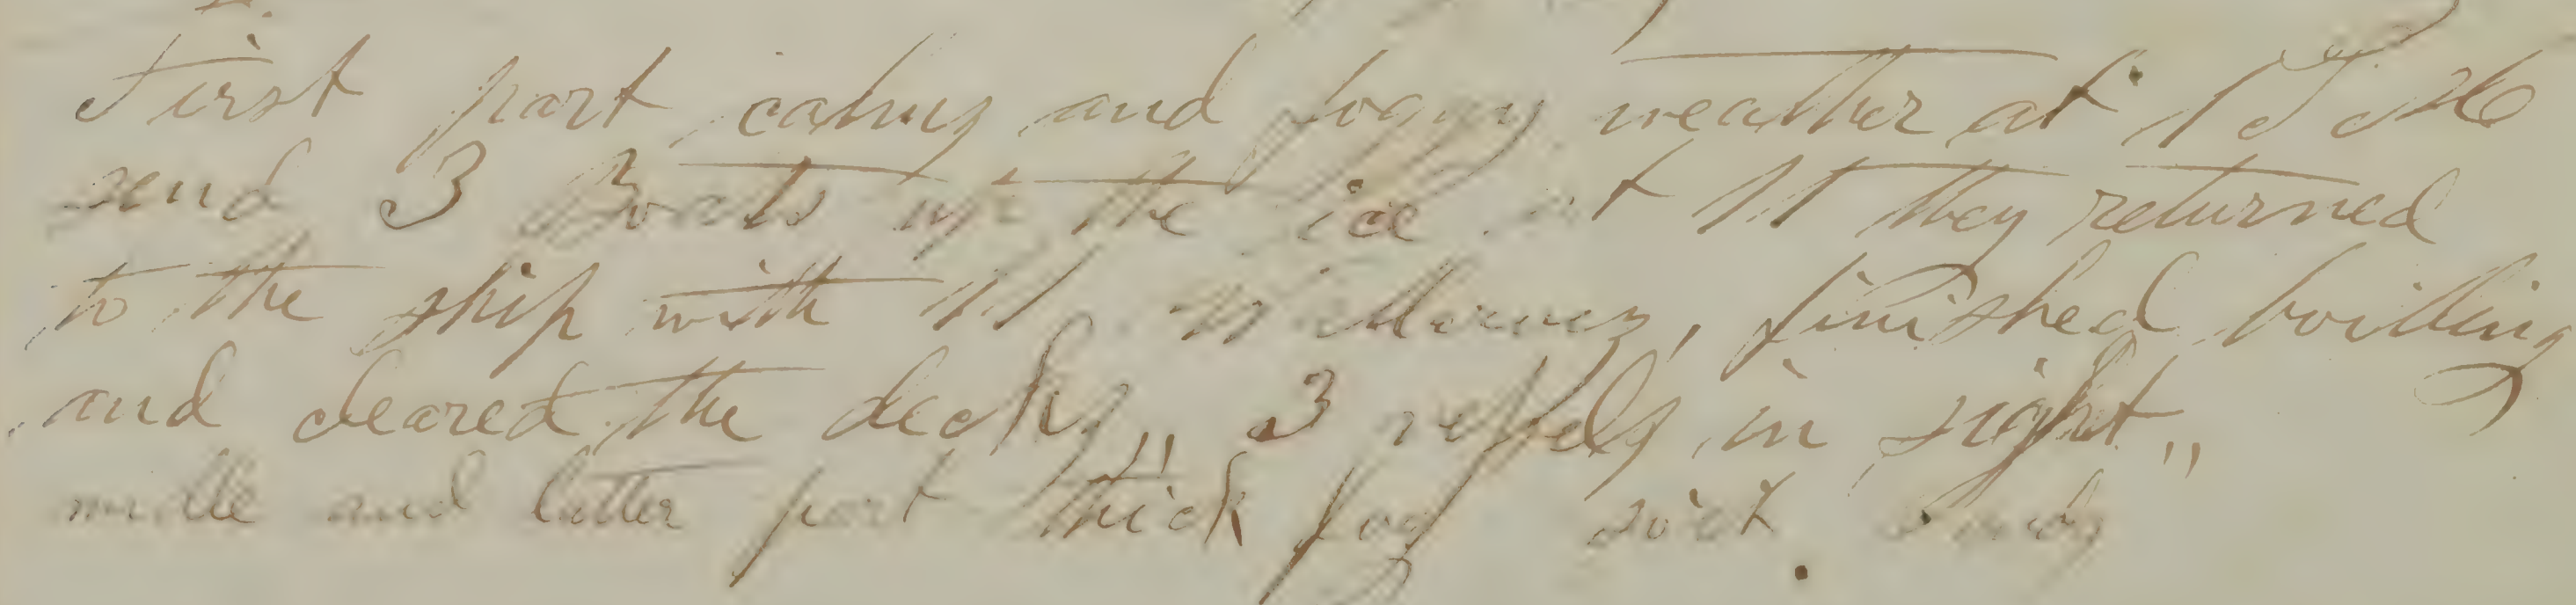 First part calms and foggy weather at 1 P M
send 3 Boats up the ice at 11 they returned
to the ship with 11 Walruses, finished boilling
and cleared the decks,, 3 vessels in sight,,
midlle and latter part thick fog